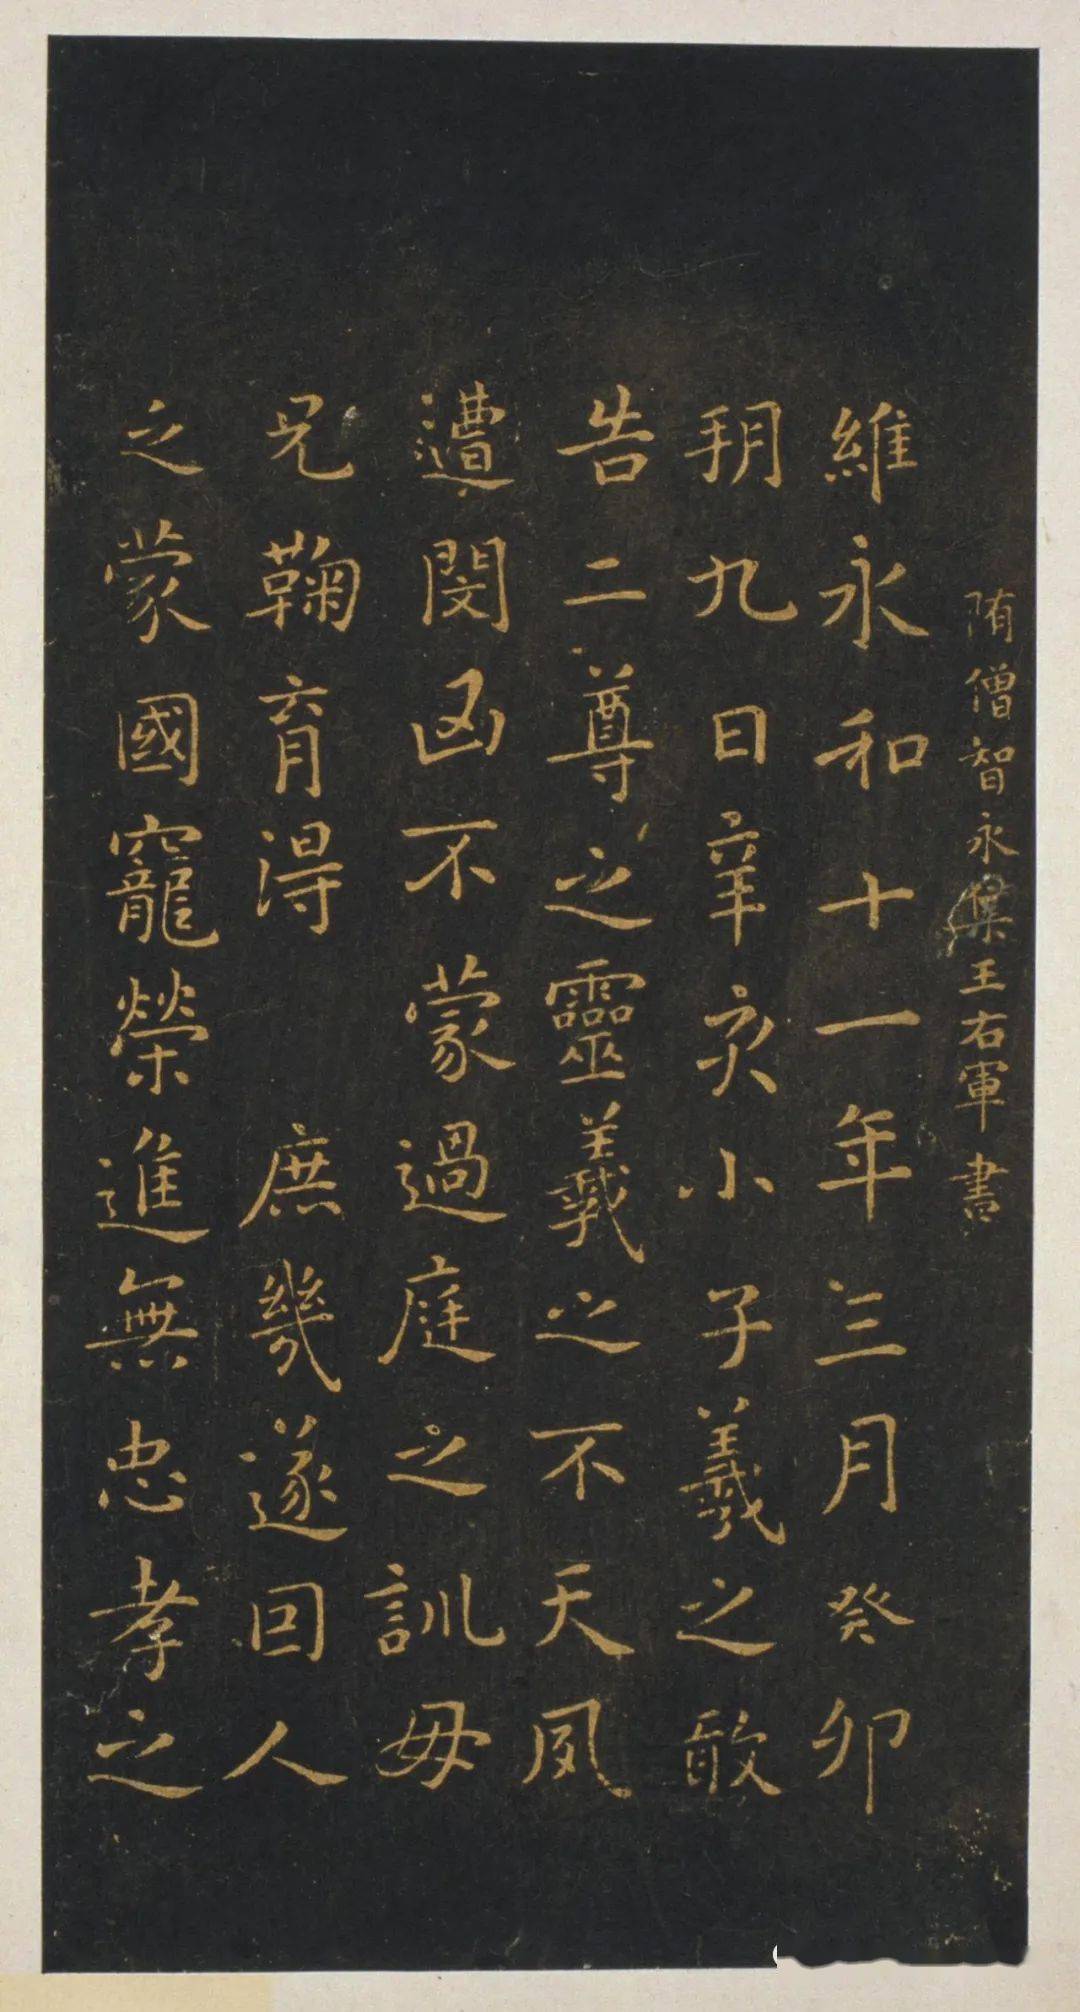 隋僧智永集王右軍書
維永和十一年三月癸卯
朔九日辛亥小子羲之敢
告二尊之靈羲之不天夙
遭閔凶不蒙過庭之訓母
兄鞠育得 庶幾遂因人
之蒙國寵榮進無忠孝之